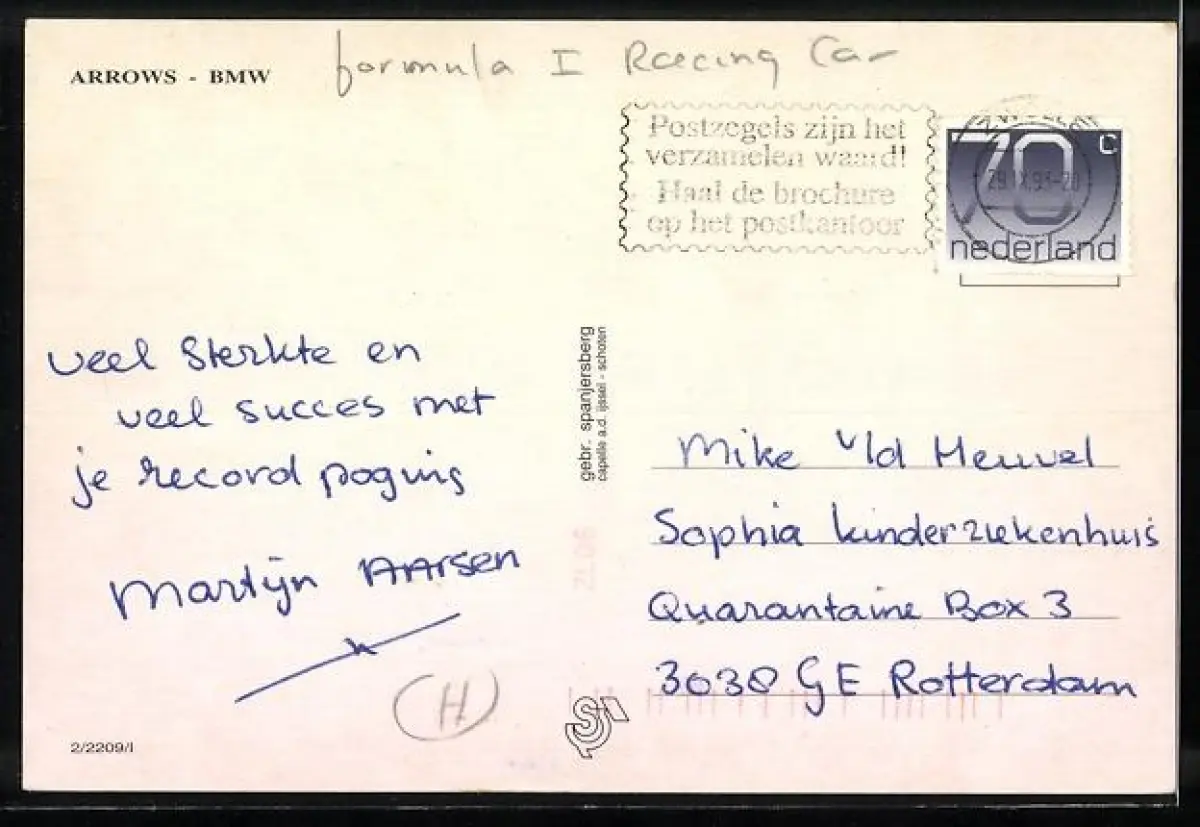 ARROWS - BMW
formula I Racing Car
Postzegels zijn het
verzamelen waard!
Haal de brochure
op het postkantoor
70 c
nederland
veel sterkte en
veel succes met
je record poguis
Martijn AArsen
gebr. spanjersberg
capelle a.d. ijssel - schoten
Mike v/d Heuvel
Sophia kinderziekenhuis
Quarantaine Box 3
3038 GE Rotterdam
ZL06
(H)
2/2209/I